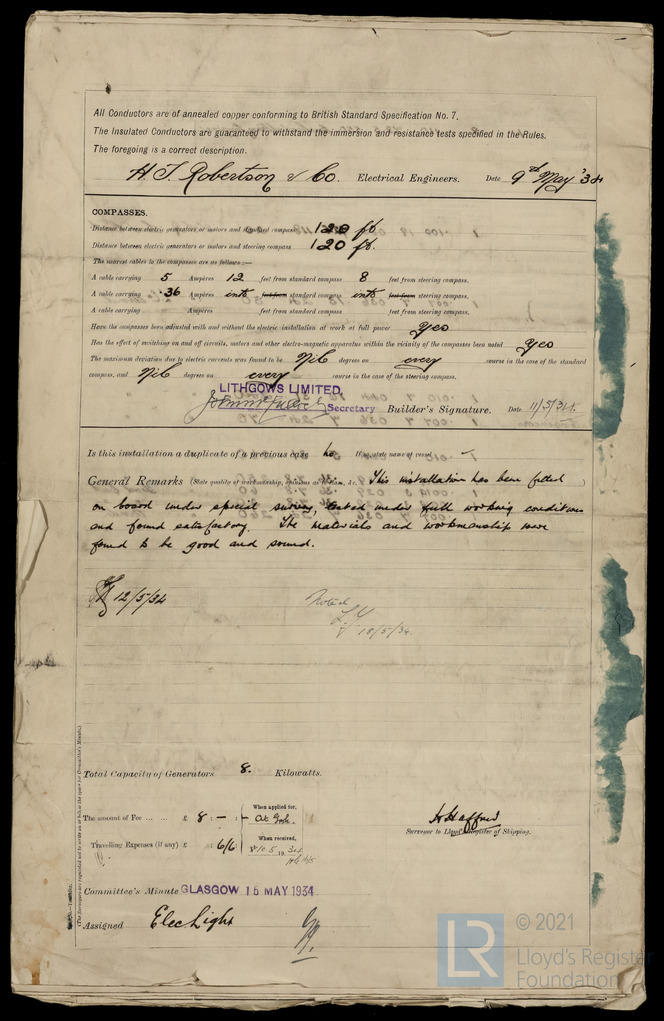 All Conductors are of annealed copper conforming to British Standard Specification No. 7.
The Insulated Conductors are guaranteed to withstand the immersion and resistance tests specified in the Rules.
The foregoing is a correct description.
H. T. Robertson & Co. Electrical Engineers. Date 9th May '34
COMPASSES.
Distance between electric generators or motors and standard compass 120 ft.
Distance between electric generators or motors and steering compass 120 ft.
The nearest cables to the compasses are as follows:—
A cable carrying 5 Ampères 12 feet from standard compass 8 feet from steering compass.
A cable carrying .36 Ampères into feet from standard compass into feet from steering compass.
A cable carrying Ampères feet from standard compass feet from steering compass.
Have the compasses been adjusted with and without the electric installation at work at full power Yes
Has the effect of switching on and off circuits, motors and other electro-magnetic apparatus within the vicinity of the compasses been noted Yes
The maximum deviation due to electric currents was found to be Nil degrees on every course in the case of the standard
compass, and Nil degrees on every course in the case of the steering compass.
LITHGOWS LIMITED.
Secretary Builder's Signature. Date 11/5/34.
Is this installation a duplicate of a previous case no If so, state name of vessel —
General Remarks (State quality of workmanship, opinions as to &c. This installation has been fitted
on board under special survey, tested under full working conditions
and found satisfactory. The materials and workmanship were
found to be good and sound.
12/5/34
Noted
18/5/34.
Total Capacity of Generators 8. Kilowatts.
The amount of Fee ... ... £ 8 : — : — When applied for,
Travelling Expenses (if any) £ 6/6 When received,
Surveyor to Lloyd's Register of Shipping.
Committee's Minute GLASGOW 15 MAY 1934
Assigned Elec Light
(The Surveyors are requested not to write on or below the space for Committee's Minute.)
LR
© 2021
Lloyd's Register
Foundation